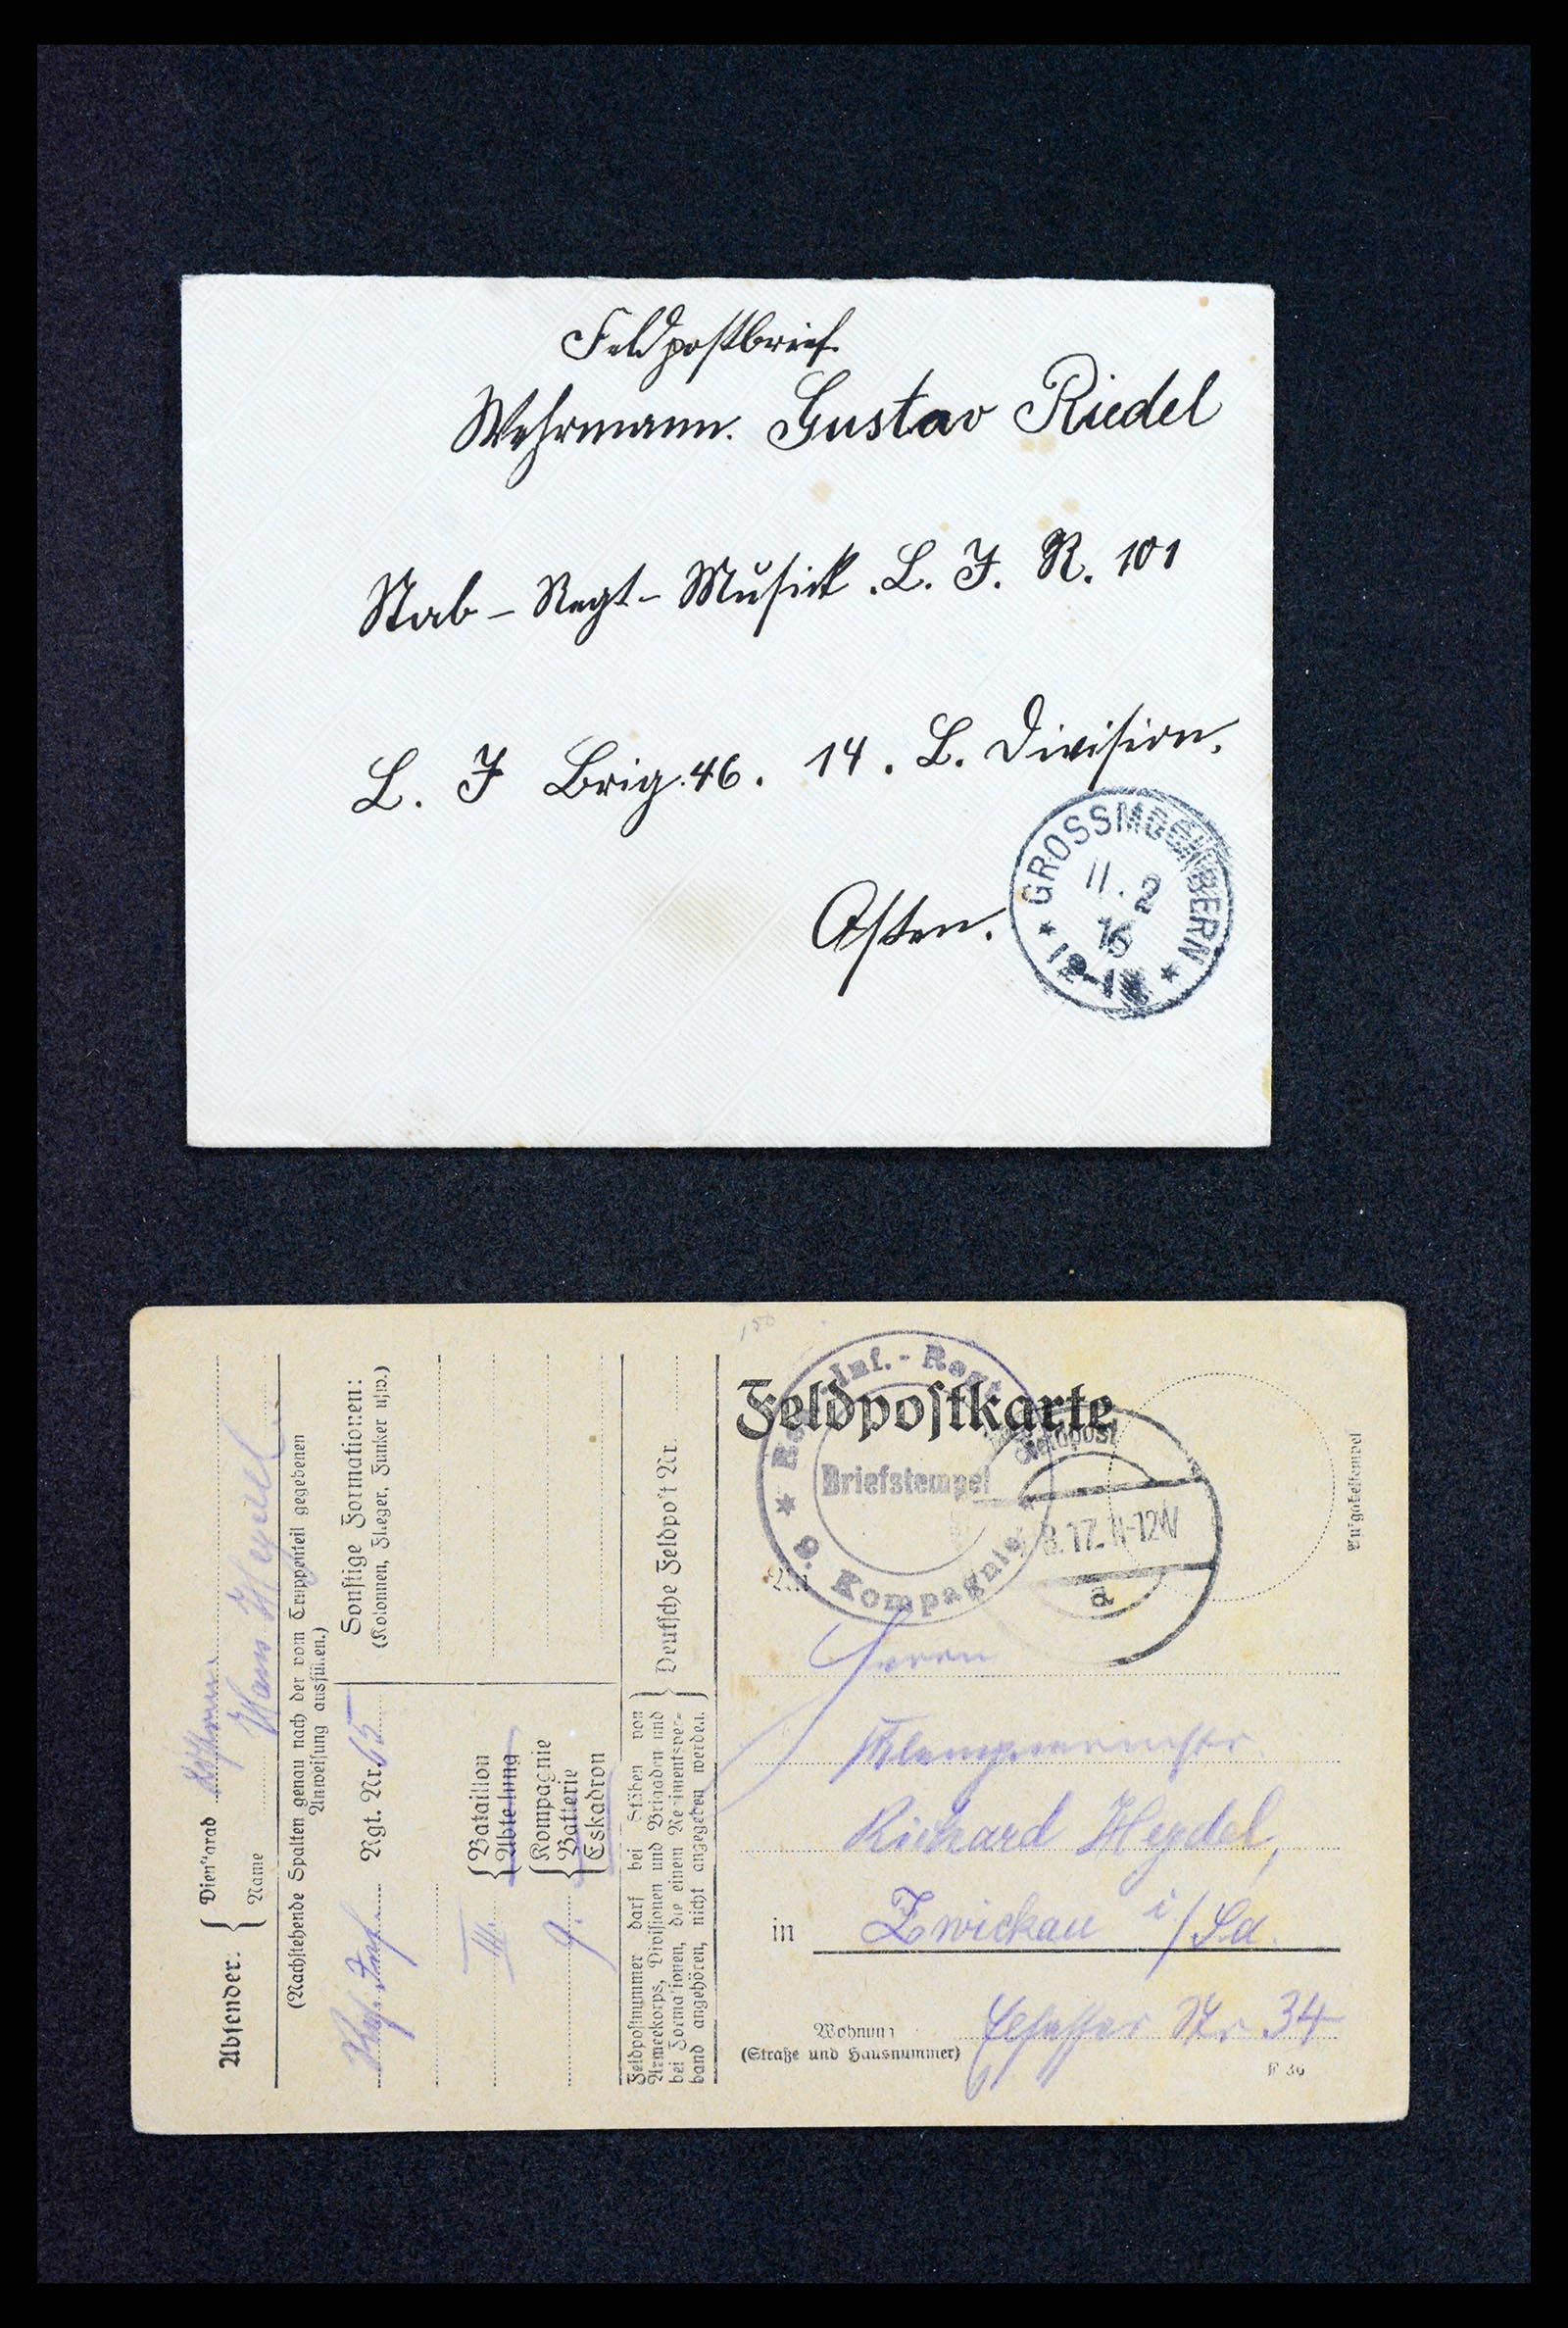 Feldpostbrief.
Wehrmann. Gustav Riedel
Stab - Regt - Musick. L. I. R. 101
L. I Brig. 46. 14. L. Division.
Osten.
GROSSMOCHBERN
11. 2
16
12-1
150
Absender:
Dienstgrad
Name Hans Heydel.
(Nachstehende Spalten genau nach der vom Truppenteil gegebenen
Anweisung ausfüllen.)
Res. Inf. Rgt. Nr. 65
III. Bataillon
Abteilung
9. Kompagnie
Batterie
Eskadron
Sonstige Formationen:
(Kolonnen, Flieger, Funker usw.)
Feldpostnummer darf bei Stäben von
Armeekorps, Divisionen und Brigaden und
bei Formationen, die einem Regimentsver-
band angehören, nicht angegeben werden.
Deutsche Feldpost Nr.
Feldpostkarte
Res. Inf.-Regt
Briefstempel
9. Kompagnie
Feldpost
8.17. 11-12V
a
Aufgabestempel
An
Herrn
Klempnermstr.
Richard Heydel,
in Zwickau i/Sa.
Wohnung
(Straße und Hausnummer)
Str. 34
F 36